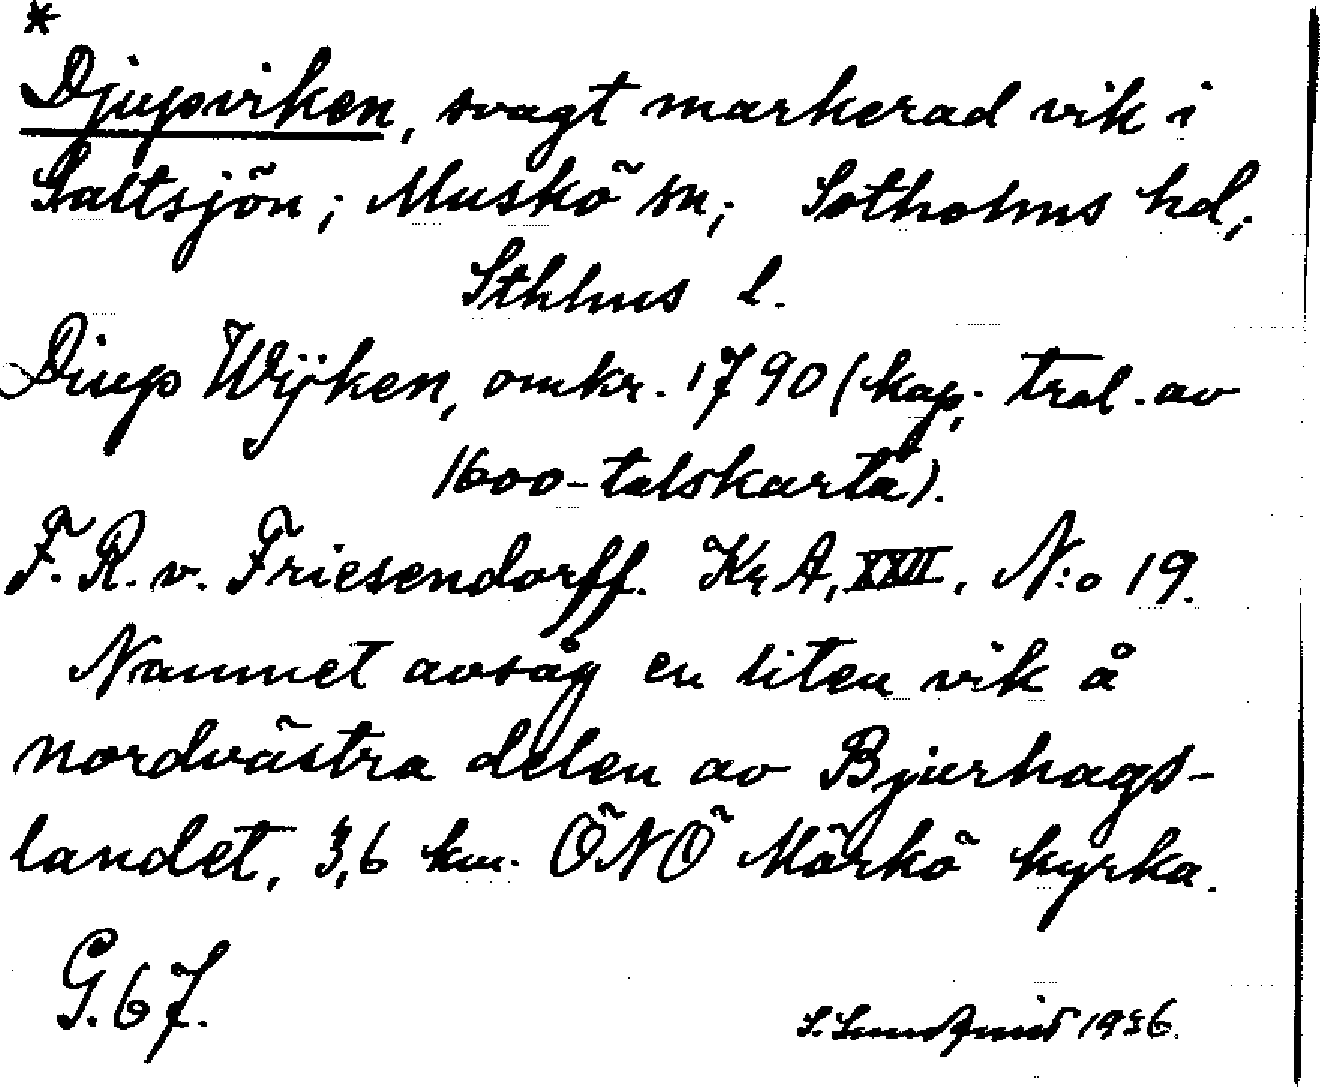 *
Djupviken, svagt markerad vik i
Saltsjön; Muskö sn; Sotholms hd;
Sthlms l.
Diup Wijken, omkr. 1790 (kap. tral. av
1600-talskarta).
F. R. v. Friesendorff. Kr A, XXII, N:o 19.
Namnet avsåg en liten vik å
nordvästra delen av Bjurhags-
landet, 3,6 km. ÖNÖ Mörkö kyrka.
G. 67.
S. Lundqvist 1936.